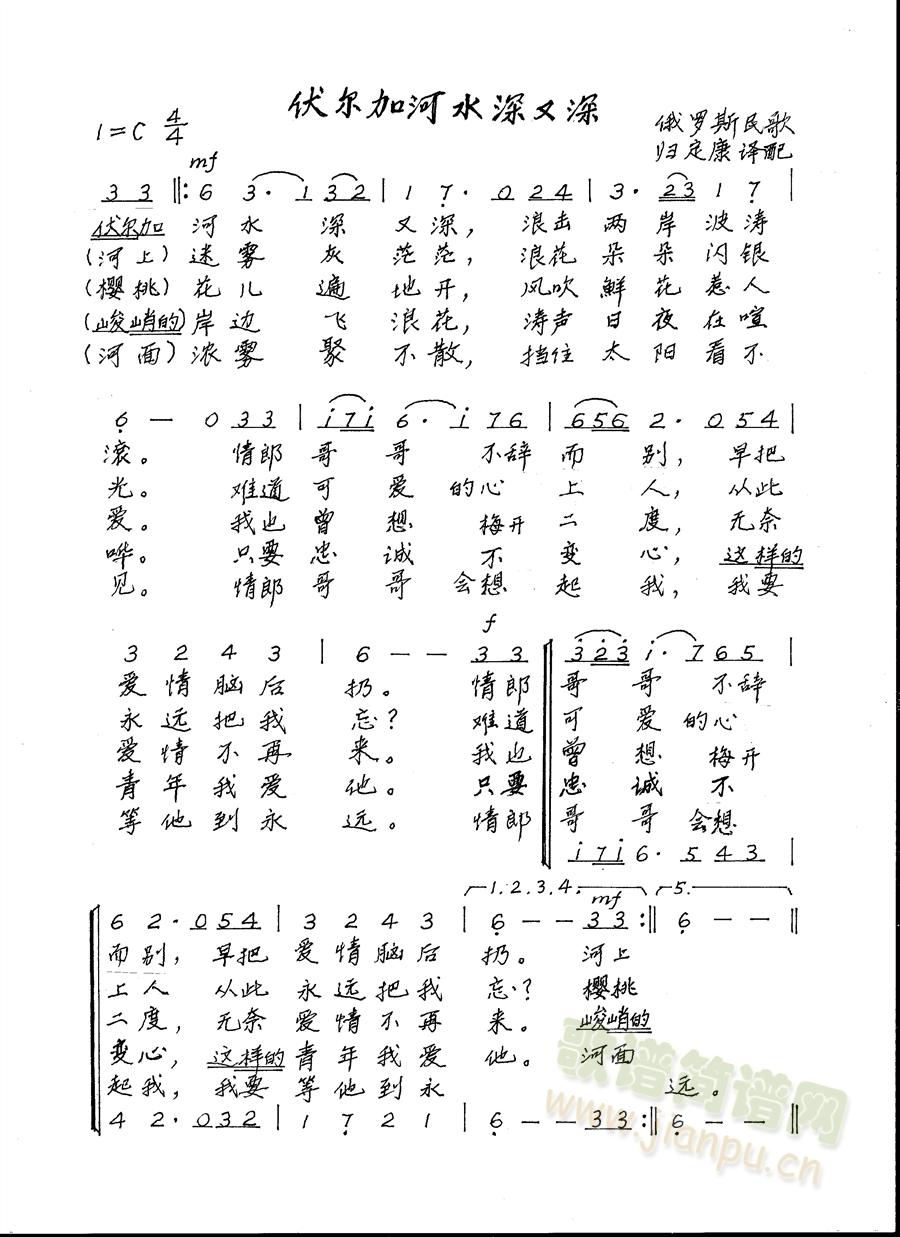 伏尔加河水深又深
1=C 4/4
俄罗斯民歌
归定康译配
mf
3 3 ‖: 6 3· 1 3 2 | 1 7· 0 2 4 | 3· 2 3 1 7 |
伏尔加 河 水 深 又 深， 浪击 两 岸 波 涛
(河上) 迷 雾 灰 茫 茫， 浪花 朵 朵 闪 银
(樱桃) 花 儿 遍 地 开， 风吹 鲜 花 惹 人
(峻峭的) 岸 边 飞 浪 花， 涛声 日 夜 在 喧
(河面) 浓 雾 聚 不 散， 挡住 太 阳 看 不
6 — 0 3 3 | i 7 i 6· i 7 6 | 6 5 6 2· 0 5 4 |
滚。 情郎 哥 哥 不辞 而 别， 早把
光。 难道 可 爱 的心 上 人， 从此
爱。 我也 曾 想 梅开 二 度， 无奈
哗。 只要 忠 诚 不 变 心， 这样的
见。 情郎 哥 哥 会想 起 我， 我要
f
3 2 4 3 | 6 — — 3 3 | 3 2 3 i· 7 6 5 |
爱 情 脑 后 扔。 情郎 哥 哥 不辞
永 远 把 我 忘？ 难道 可 爱 的心
爱 情 不 再 来。 我也 曾 想 梅开
青 年 我 爱 他。 只要 忠 诚 不
等 他 到 永 远。 情郎 哥 哥 会想
i 7 i 6· 5 4 3 |
1.2.3.4. mf 5.
6 2· 0 5 4 | 3 2 4 3 | 6 — — 3 3 :‖ 6 — — ‖
而 别， 早把 爱 情 脑 后 扔。 河上
上 人 从此 永 远 把 我 忘？ 樱桃
二 度， 无奈 爱 情 不 再 来。 峻峭的
变 心， 这样的 青 年 我 爱 他。 河面
起 我， 我要 等 他 到 永 远。
4 2· 0 3 2 | 1 7 2 1 | 6 — — 3 3 :‖ 6 — — ‖
歌谱简谱网
www.jianpu.cn